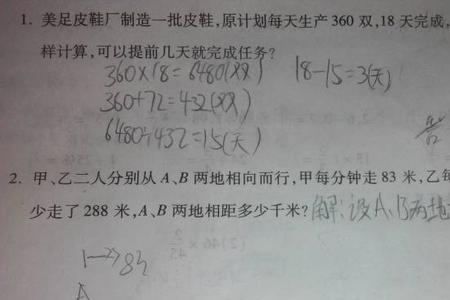 1. 美足皮鞋厂制造一批皮鞋,原计划每天生产360双,18天完成,
样计算,可以提前几天就完成任务?
360×18=6480(双) 18-15=3(天)
360+72=432(双)
6480÷432=15(天)
答
2. 甲、乙二人分别从A、B两地相向而行,甲每分钟走83米,乙每
少走了288米,A、B两地相距多少千米? 解:设A、B两地